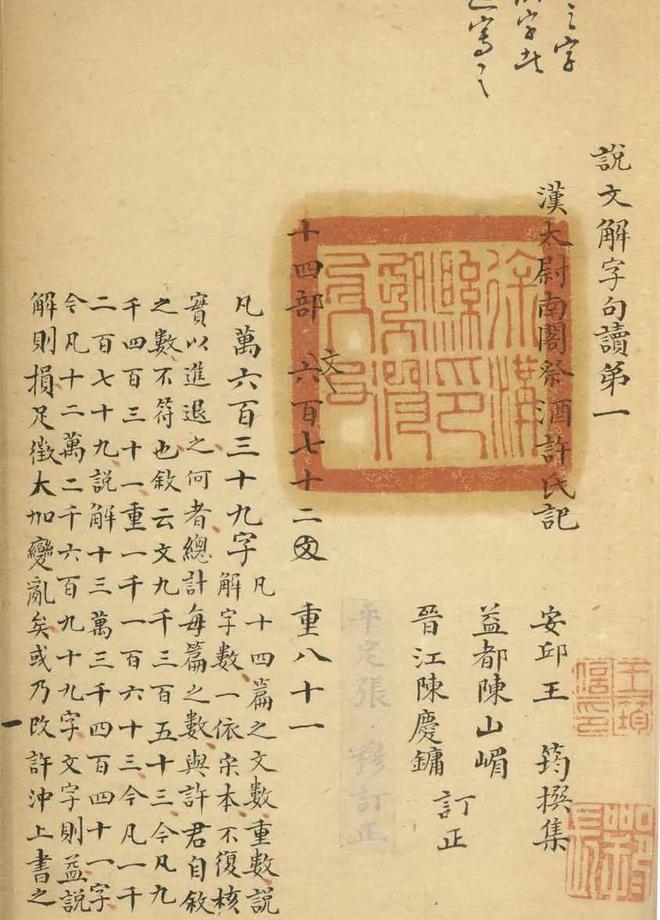 之字
字
寫之
說文解字句讀第一
漢太尉南閣祭酒許氏記
安邱王　筠撰集
益都陳山嵋
晉江陳慶鏞
訂正
平定張　穆訂正
十四部　文六百七十二文　重八十一
凡萬六百三十九字
凡十四篇之文數重數說
解字數一依宋本不復核
實以進退之何者總計每篇之數與許君自敘
之數不符也敘云文九千三百五十三今凡九
千四百三十一重一千一百六十三今凡一千
二百七十九說解十三萬三千四百四十一字
今凡十二萬二千六百九十九字文字則益說
解則損足徵大加變亂矣或乃改許沖上書之